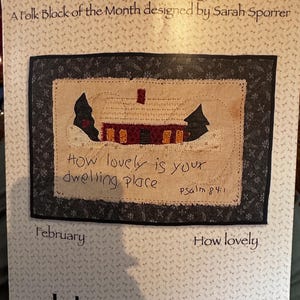 A Folk Block of the Month designed by Sarah Sporrer
How lovely is your
dwelling place
Psalm 84:1
February
How lovely